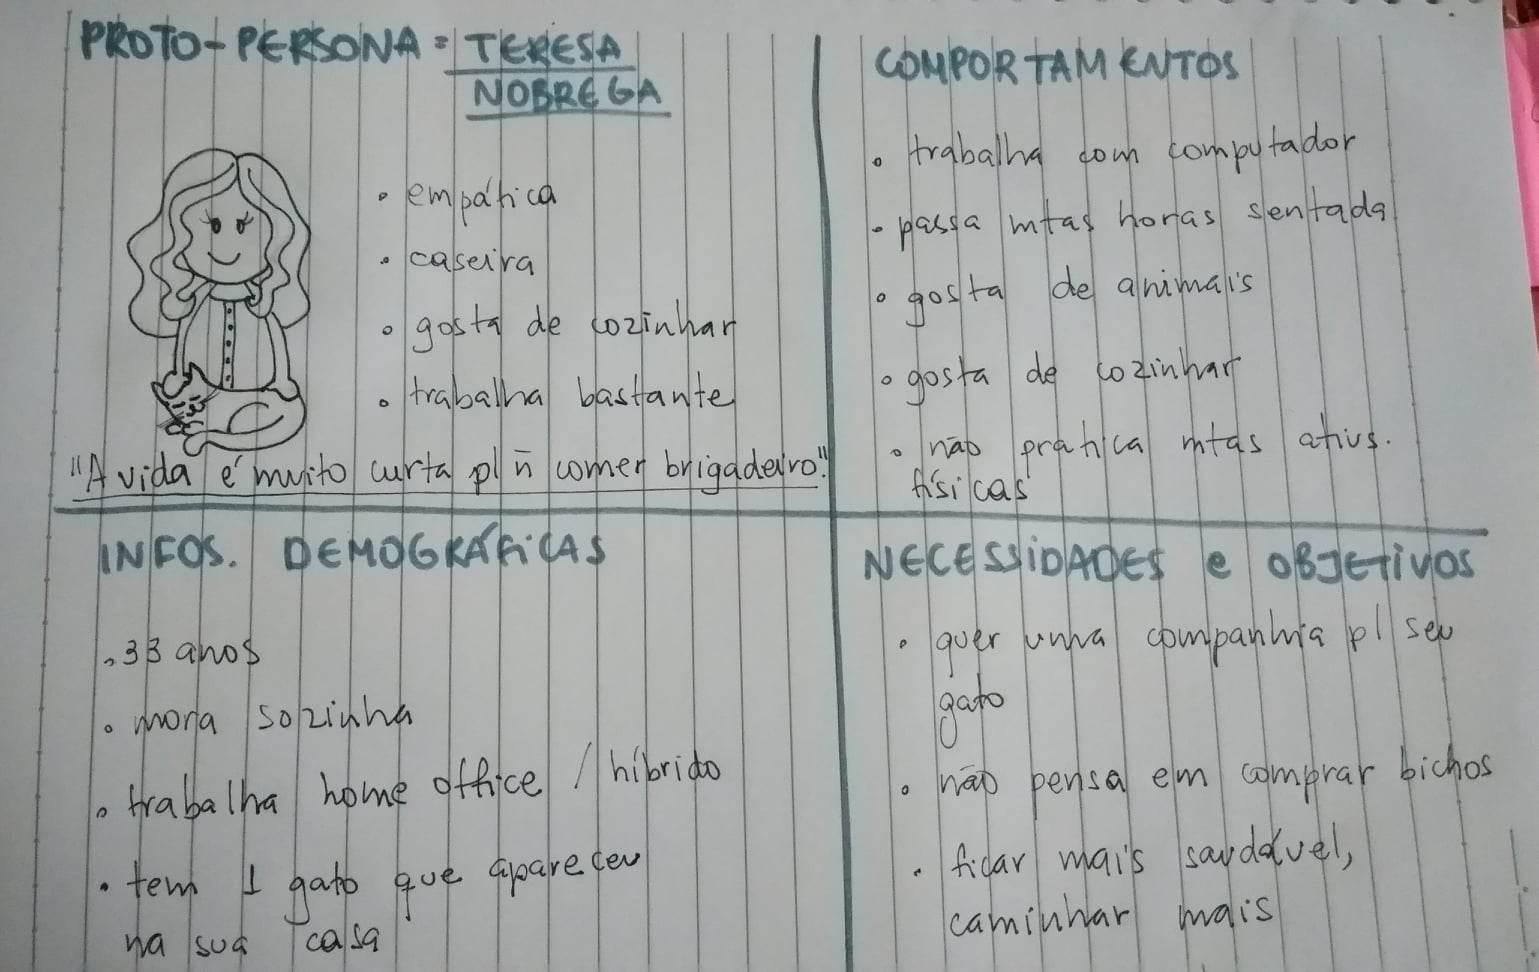 PROTO-PERSONA: TERESA
NOBREGA
• empática
• caseira
• gosta de cozinhar
• trabalha bastante
"A vida é muito curta p/ ñ comer brigadeiro!"
COMPORTAMENTOS
• trabalha com computador
• passa mtas horas sentada
• gosta de animais
• gosta de cozinhar
• não pratica mtas ativs.
físicas
INFOS. DEMOGRÁFICAS
• 33 anos
• mora sozinha
• trabalha home office / híbrido
• tem 1 gato que apareceu
na sua casa
NECESSIDADES e OBJETIVOS
• quer uma companhia p/ seu
gato
• não pensa em comprar bichos
• ficar mais saudável,
caminhar mais